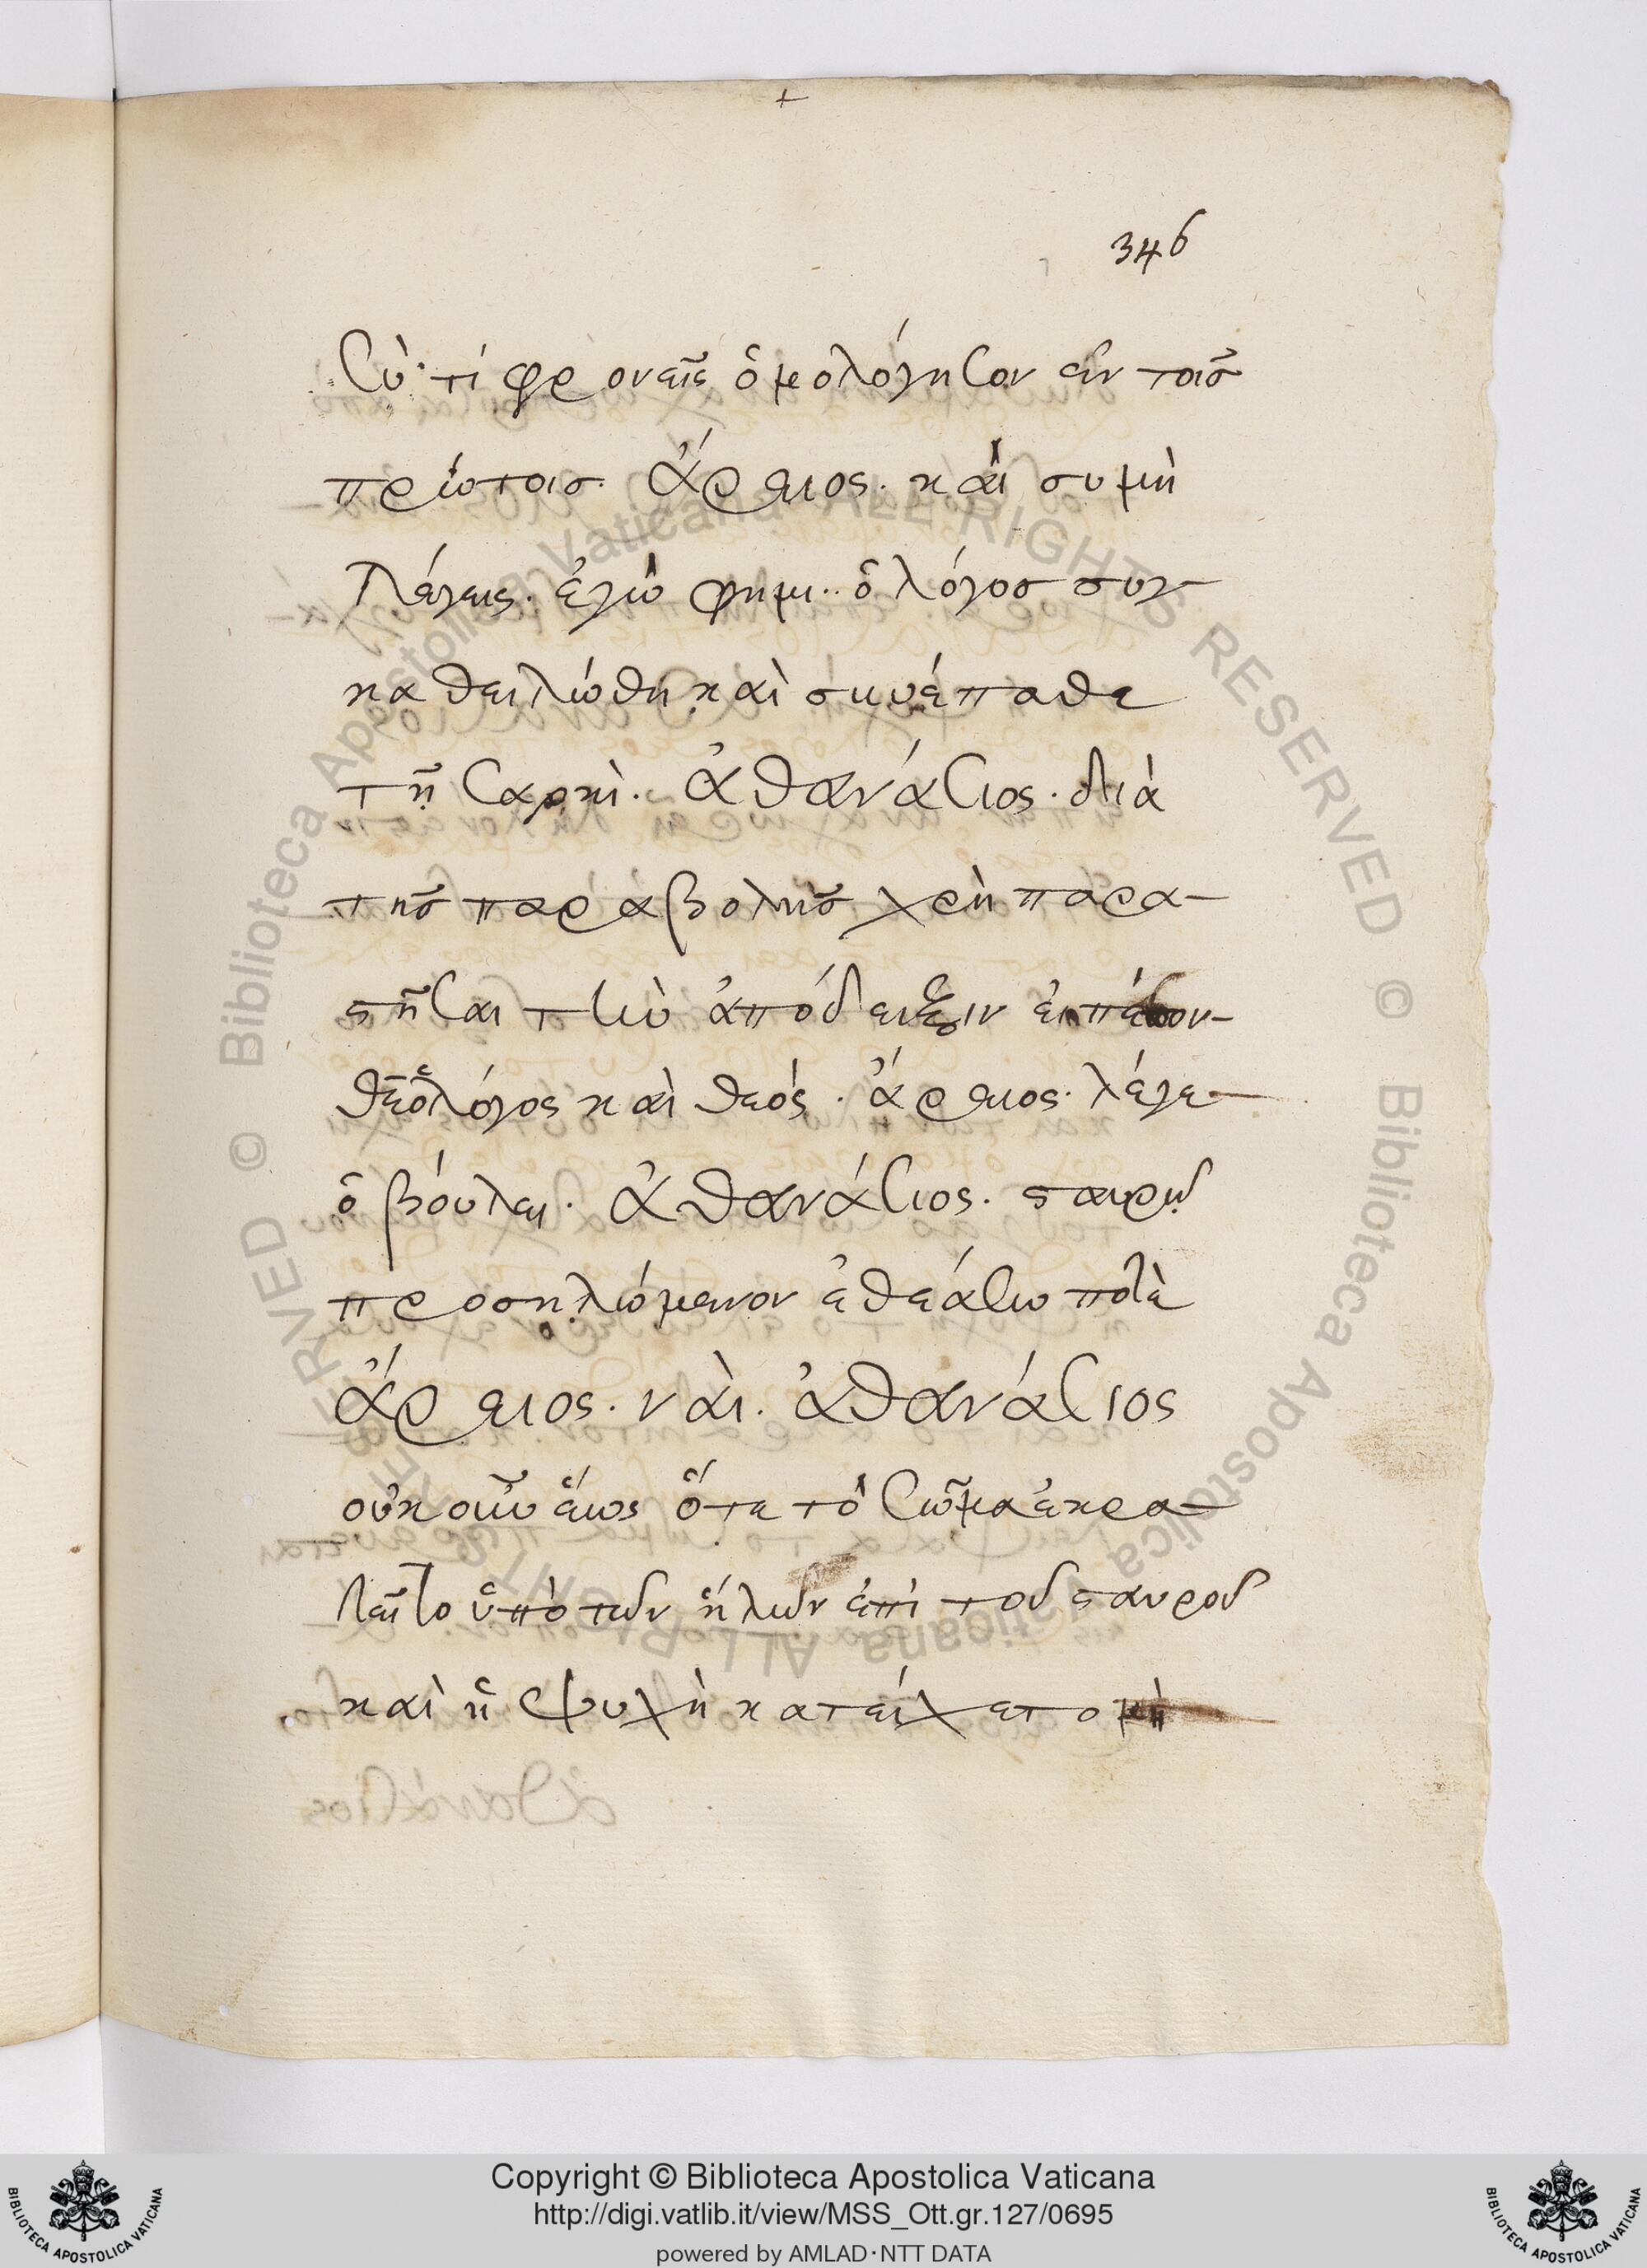 +
346
Σὺ· τί φρονεῖς ὁμολόγησον ἐν τοῖς
πρώτοις. ἄρειος. καὶ σὺ μὴ
λέγεις. ἐγὼ φημι. ὁ λόγος συγ-
καθειλώθη καὶ συνέπαθε
τῇ σαρκὶ. ἀθανάσιος. διὰ
τῆς παραβολῆς χρὴ παρα-
στῆσαι τὴν ἀπόδειξιν εἰ πέπον-
θεν ὁ λόγος καὶ θεός. ἄρειος. λέγε
ὃ βούλει. ἀθανάσιος. σταυρῷ
προσηλώμενον ἐθεάσω ποτὲ
ἄρειος. ναὶ. ἀθανάσιος
οὐκοῦν ἕως ὅτε τὸ σῶμα ἐκρα-
τεῖτο ὑπὸ τῶν ἥλων ἐπὶ τοῦ σταυροῦ
καὶ ἡ ψυχὴ κατείχετο μὴ
Biblioteca Apostolica Vaticana ALL RIGHTS RESERVED ©
Biblioteca Apostolica Vaticana ALL RIGHTS RESERVED ©
Copyright © Biblioteca Apostolica Vaticana
http://digi.vatlib.it/view/MSS_Ott.gr.127/0695
powered by AMLAD·NTT DATA
BIBLIOTECA APOSTOLICA VATICANA
BIBLIOTECA APOSTOLICA VATICANA